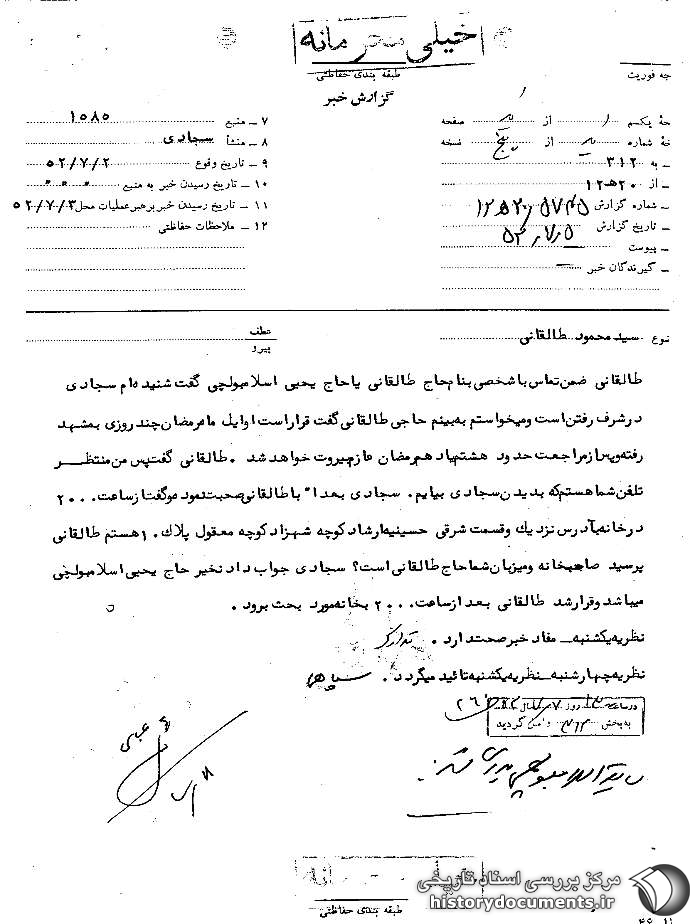 خیلی محرمانه
طبقه بندی حفاظتی
گزارش خبر
جه فوریت
حهٔ یکم ۱ از یک صفحه
خهٔ شماره یک از پنج نسخه
ـ به ۳۱۲
ـ از ۲۰ ه‍ ۱۲
ـ شماره گزارش
ـ تاریخ گزارش
ـ پیوست ــ
ـ گیرندگان خبر ــ
۷ ـ منبع ۱۰۸۵
۸ ـ منشأ سجادی
۹ ـ تاریخ وقوع ۵۲/۷/۲
۱۰ ـ تاریخ رسیدن خبر به منبع ۰۰۰
۱۱ ـ تاریخ رسیدن خبر برهبر عملیات محل ۵۲/۷/۳
۱۲ ـ ملاحظات حفاظتی
نوع سید محمود طالقانی
عطف
پیرو
طالقانی ضمن تماس با شخصی بنام حاج طالقانی یا حاج یحیی اسلامبولچی گفت شنیده‌ام سجادی
در شرف رفتن است و میخواستم به‌بینم حاجی طالقانی گفت قرار است اوایل ماه رمضان چند روزی به مشهد
رفته و پس از مراجعت حدود هشتم یا دهم رمضان عازم بیروت خواهد شد . طالقانی گفت پس من منتظر
تلفن شما هستم که بدیدن سجادی بیایم . سجادی بعداً با طالقانی صحبت نمود و گفت از ساعت ۲۰۰۰
در خانه بآدرس نزدیک و قسمت شرقی حسینیه ارشاد کوچه شهرزاد کوچه معقول پلاک ۱۰ هستم طالقانی
پرسید صاحبخانه و میزبان شما حاج طالقانی است؟ سجادی جواب داد نخیر حاج یحیی اسلامبولچی
میباشد و قرار شد طالقانی بعد از ساعت ۲۰۰۰ بخانه مورد بحث برود .
نظریه یکشنبه ـ مفاد خبر صحت دارد . تدارک
نظریه چهارشنبه ـ نظریه یکشنبه تائید میگردد .
در ساعت روز
به بخش ۳۱۲ گردید
طبقه بندی حفاظتی
مرکز بررسی اسناد تاریخی
historydocuments.ir